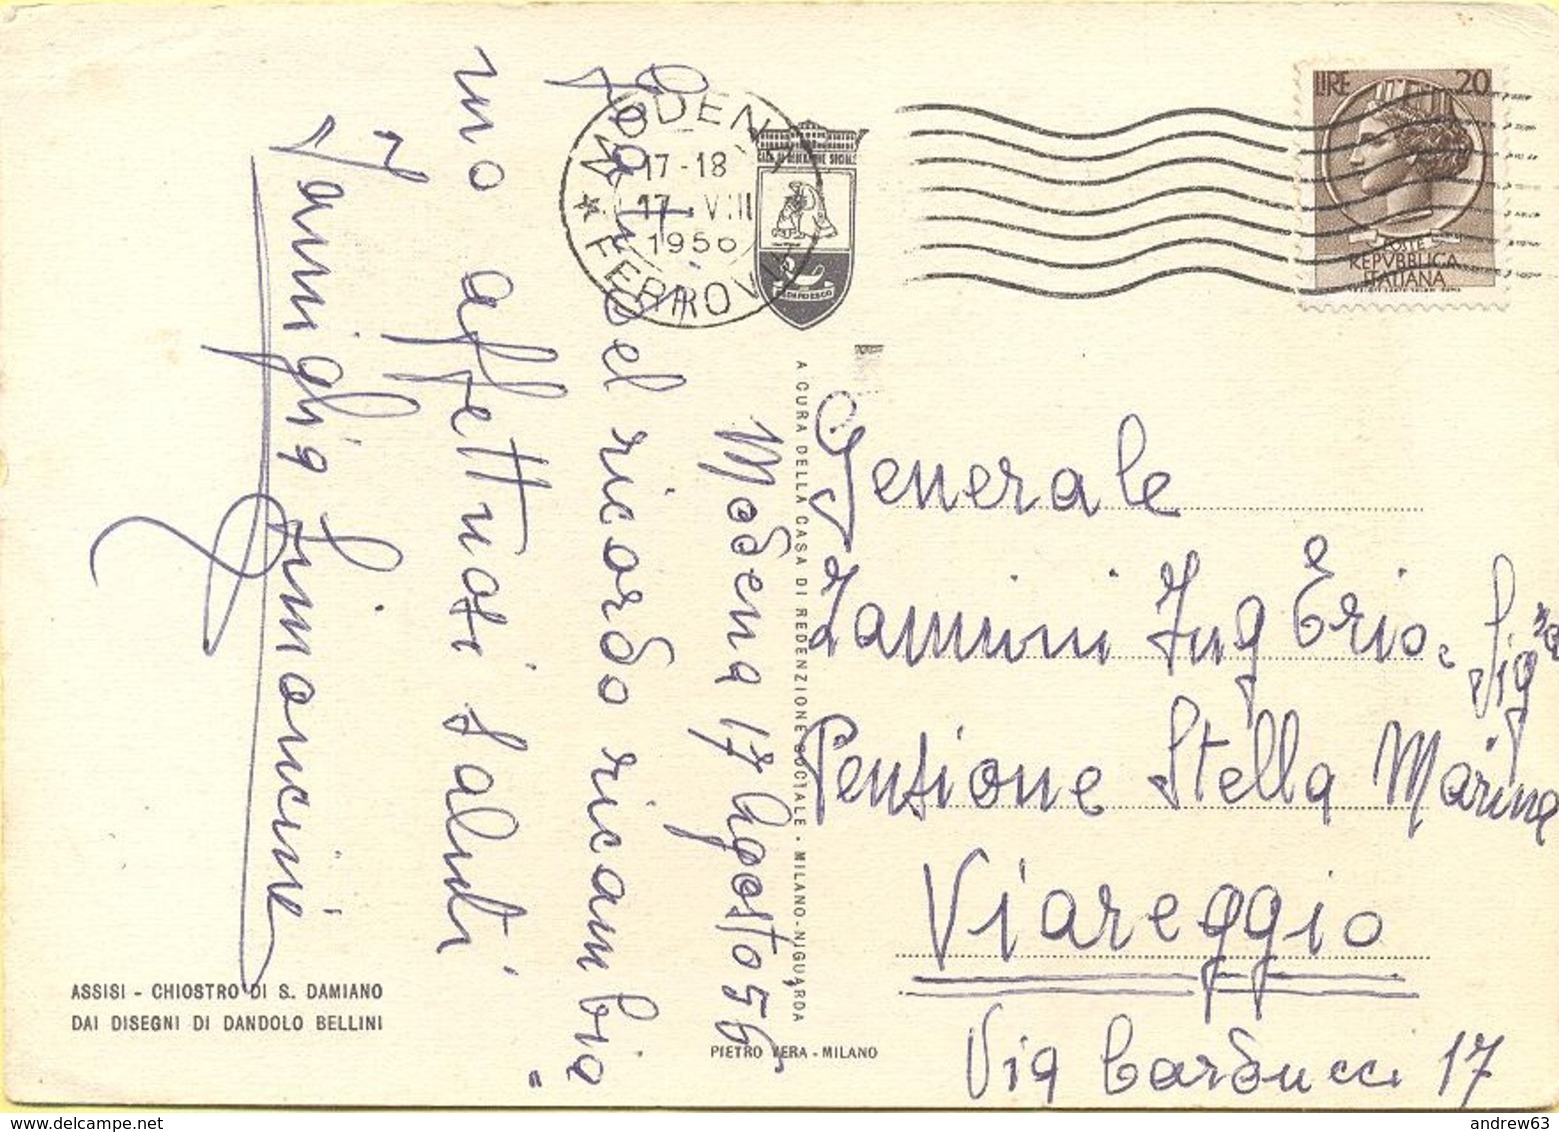 Modena 17 Agosto 56
Graditi del ricordo ricambia=
mo affettuosi saluti
Famiglia Simoncini
MODENA
17-18
17.VIII
1956
★ FERROVIA
CASA DI REDENZIONE SOCIALE
LIRE 20
POSTE
REPVBBLICA
ITALIANA
A CURA DELLA CASA DI REDENZIONE SOCIALE - MILANO-NIGUARDA
Generale
Zannini Ing Erio e Sig.ra
Pensione Stella Marina
Viareggio
Via Carducci 17
ASSISI - CHIOSTRO DI S. DAMIANO
DAI DISEGNI DI DANDOLO BELLINI
PIETRO VERA - MILANO
andrew63